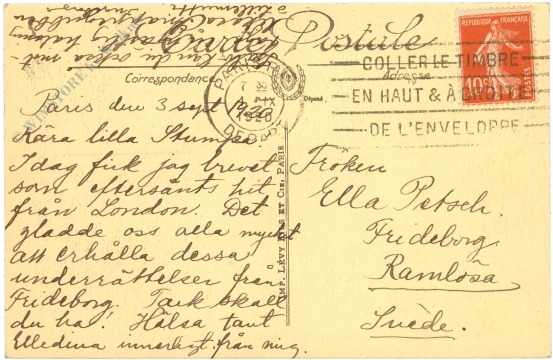 Carte Postale
Correspondance
Adresse
RÉPUBLIQUE FRANÇAISE
10c
POSTES
PARIS
7 30
1920
DEPART
COLLER LE TIMBRE
EN HAUT & À DROITE
DE L'ENVELOPPE
IMP. LÉVY FILS ET Cie, PARIS
Paris den 3 sept 1920
Kära lilla Stumpa
Idag fick jag brevet
som eftersänts hit
från London. Det
gladde oss alla mycket
att erhålla dessa
underrättelser från
Frideborg. Tack skall
du ha! Hälsa tant
Elledina innerligt från mig.
Fröken
Ella Petsch.
Frideborg.
Ramlösa
Suède.